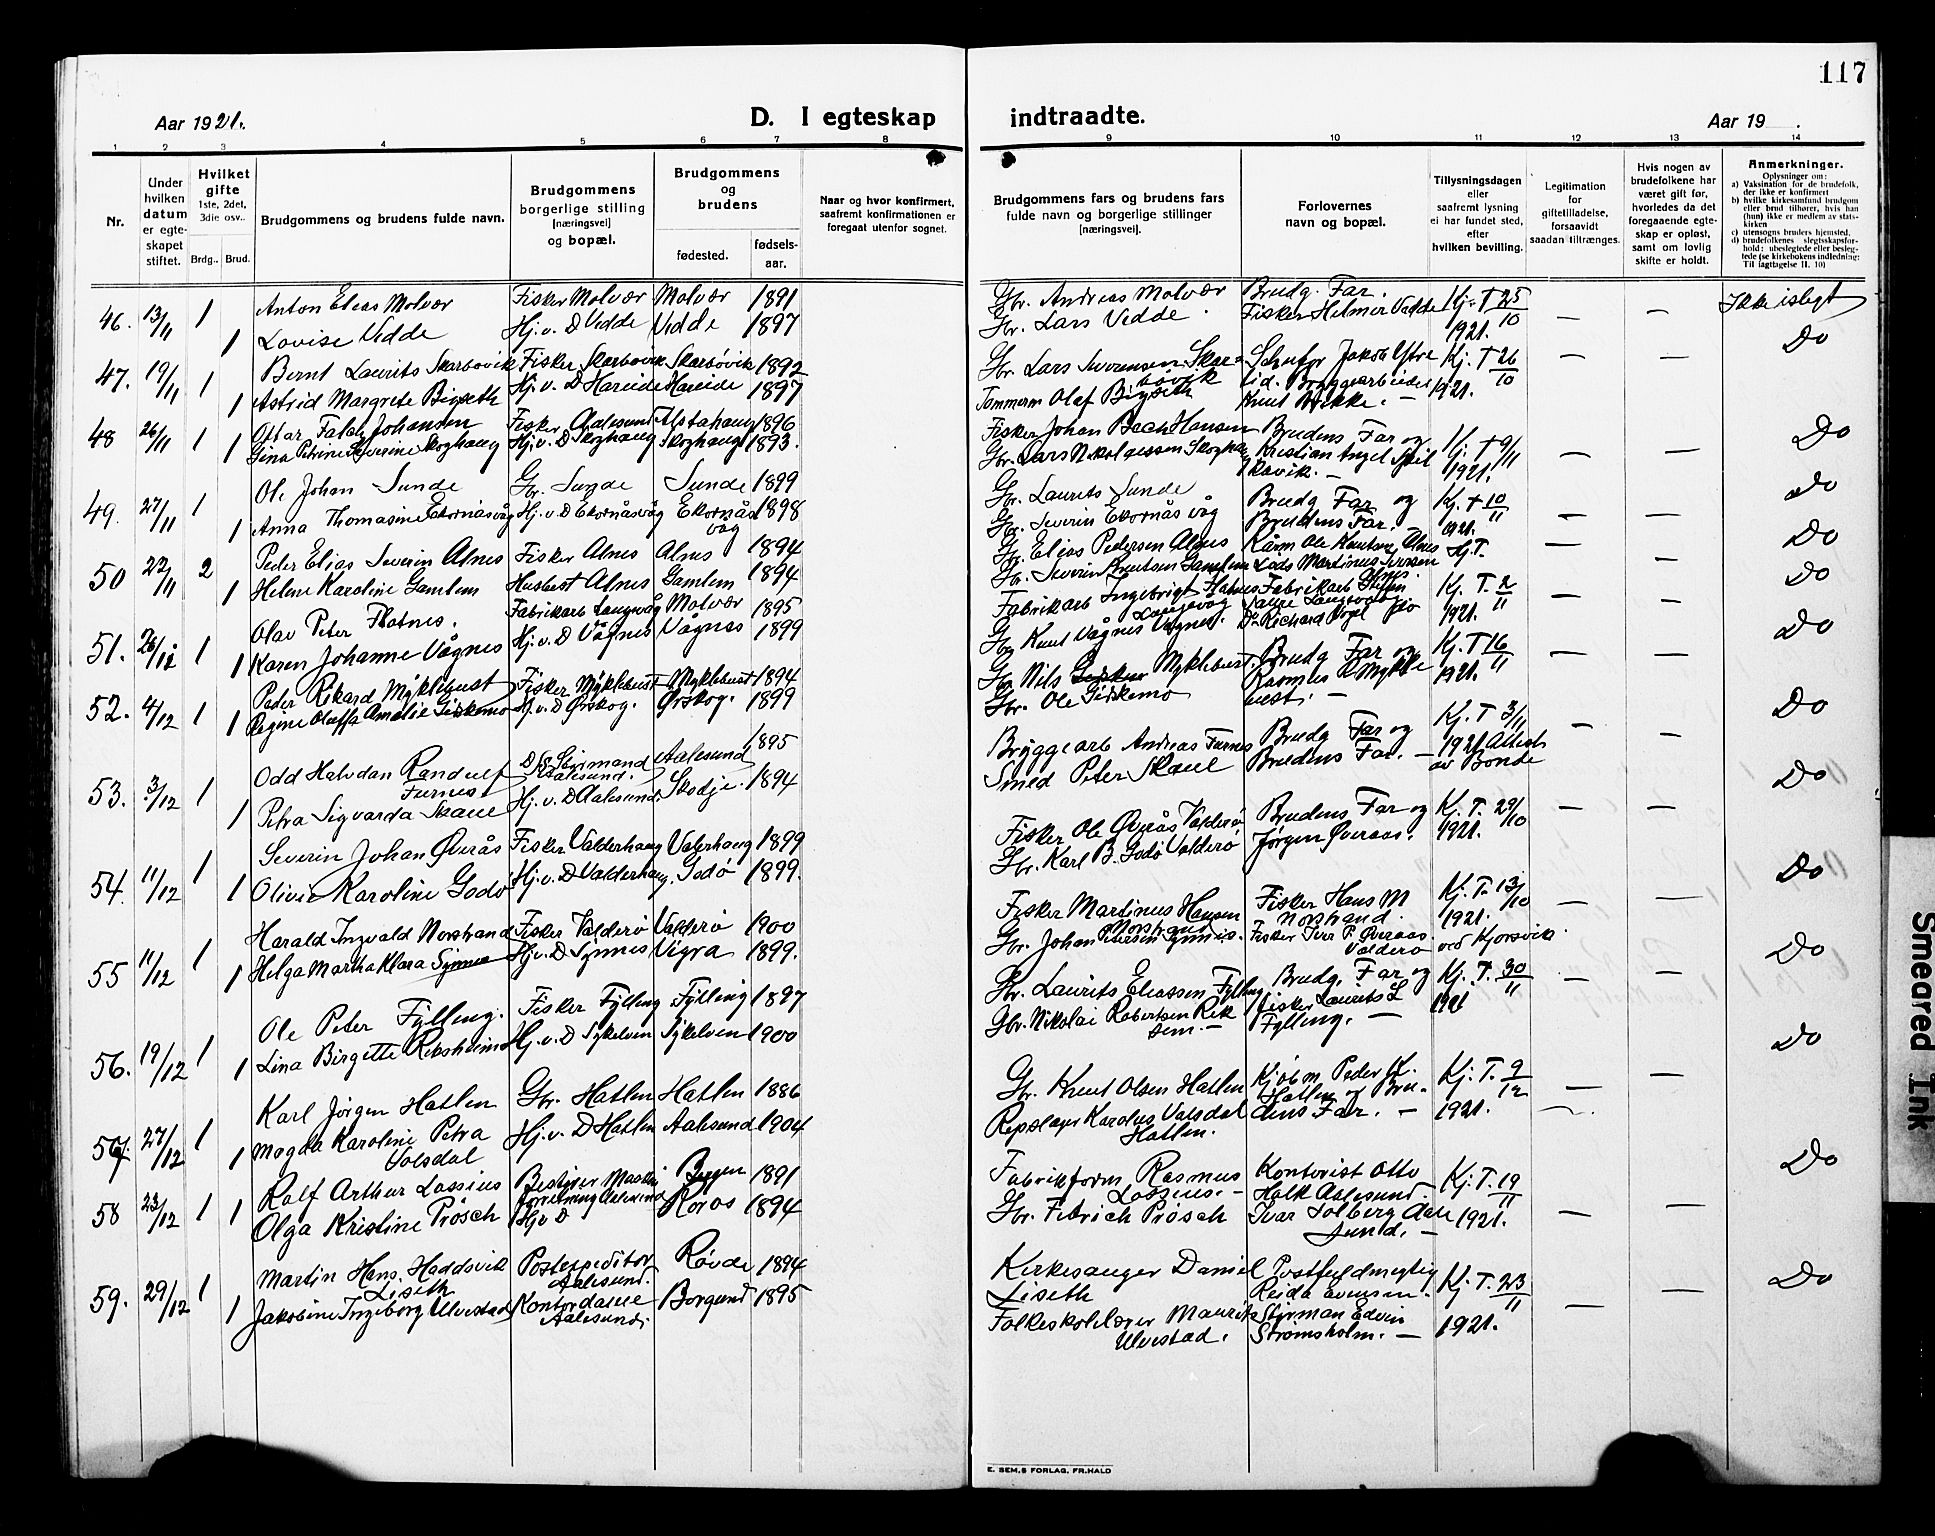 117
Aar 1921.
D. I egteskap
indtraadte.
Aar 19 .
1 2 3 4 5 6 7 8 9 10 11 12 13 14
Nr.
Under hvilken datum er egteskapet stiftet.
Hvilket gifte 1ste, 2det, 3die osv..
Brdg.. Brud.
Brudgommens og brudens fulde navn.
Brudgommens borgerlige stilling [næringsvei] og bopæl.
Brudgommens og brudens
fødested.
fødsels-aar.
Naar og hvor konfirmert, saafremt konfirmationen er foregaat utenfor sognet.
Brudgommens fars og brudens fars fulde navn og borgerlige stillinger [næringsvei].
Forlovernes navn og bopæl.
Tillysningsdagen eller saafremt lysning ei har fundet sted, efter hvilken bevilling.
Legitimation for giftetilladelse, forsaavidt saadan tiltrænges.
Hvis nogen av brudefolkene har været gift før, hvorledes da det foregaaende egteskap er opløst, samt om lovlig skifte er holdt.
Anmerkninger.
Oplysninger om:
a) Vaksination for de brudefolk, der ikke er konfirmert
b) hvilke kirkesamfund brudgom eller brud tilhører, hvis han (hun) ikke er medlem av statskirken
c) utensogns bruders hjemsted,
d) brudefolkenes slegtsskapsforhold: ubeslegtede eller beslegtede (se kirkebokens indledning: Til iagttagelse II. 10)
46. 13/11 1 Anton Elias Molvær Fisker Molvær Molvær 1891 Gbr. Andreas Molvær Brudg. Far. Kj. T 25/10 — — Ikke islegt
1 Lovise Vedde Hj. v. D Vedde Vedde 1897 Gbr. Lars Vedde. Fisker Helmer Vedde 1921.
47. 19/11 1 Bernt Laurits Skarbøvik Fisker Skarbøvik Skarbøvik 1892 Gbr. Lars Skarbøvik Jakob Ytre Kj. T 26/10 — — Do
1 Astrid Margrete Bigseth Hj. v. D Hareide Hareide 1897 Tømmerm Olaf Bigseth lid. Bryggearbeider Knut 1921.
48 26/11 1 Ottar Falch Johansen Fisker Aalesund Alstahaug 1896 Fisker Johan Bech Hansen Brudens Far og Kj. T 9/11 — — Do
1 Gina Petrine Severine Skoghaug Hj. v. D Skoghaug Skoghaug 1893. Gbr. Lars Nikolaessen Kristian Skavik. — 1921.
49. 27/11 1 Ole Johan Sunde Gbr. Sunde Sunde 1899 Gbr. Laurits Sunde Brudg Far og Kj. T 10/11 — — Do
1 Anna Thomasine Ekornåsvåg Hj. v. D Ekornåsvåg Ekornåsvåg 1898 Gbr. Severin Ekornåsvåg Brudens Far. — 1921.
50 27/11 2 Peder Elias Severin Alnes Fisker Alnes Alnes 1894 Gbr. Elias Pedersen Alnes Ole Knutsen Alnes Kj. T. — — Do
1 Helene Karoline Gamlem Husbest Alnes Gamlem 1894 Gbr. Severin Knutsen Gamlem Lods Martinus Iversen Alnes. Do
51. 26/11 1 Olav Peter Flotnes. Fabrikarb Langevåg Molvær 1895 Fabrikarb Ingebrigt Langevåg Fabrikarb Langevåg Kj. T. 2/11 — —
1 Karen Johanne Vågnes Hj. v. D Vågnes Vågnes 1899 Gbr Knut Vågnes Vågnes. Richard 1921. Do
52. 4/12 1 Peder Rikard Myklebust Fisker Myklebust Myklebust 1894 Gbr Nils Myklebust. Brudg Far og Kj. T 16/11 — —
1 Regine Olaffa Amalie Giskemo Hj. v. D Ørskog. Ørskog. 1899 Gbr. Ole Giskemo Rasmus R Myklebust. — 1921. Do
53. 3/12 1 Odd Halvdan Randulf Furnes D/S Styrmand Aalesund. Aalesund 1895 Bryggearb Andreas Furnes Brudg Far og Kj. T 3/11 — —
1 Petra Sigvarda Skaue Hj. v. D Aalesund. Skodje. 1894 Smed Peter Skaue Brudens Far. — 1921 Attest av Bonde Do
54. 11/12 1 Severin Johan Øvrås Fisker Valderhaug Valerhaug 1899 Fisker Ole Øvrås Valderø Brudens Far og Kj. T. 29/10 — —
1 Olivie Karoline Godø Hj. v. D Valderhaug. Godø 1899. Gbr. Karl B. Godø Valderø Jørgen Øveraas. 1921. Do
55 11/12 1 Harald Ingvald Norstrand Fisker Valderø Valderø 1900 Fisker Martinus Hansen Norstrand Fisker Hans M Norstrand. Kj. T. 13/10 — —
1 Helga Martha Klara Synnes Hj. v. D Synnes Vigra 1899. Gbr. Johan Petersen Synnes. Fisker Iver P. Øveraas Valderø 1921. ved Kjorsvik. Do
56. 19/12 1 Ole Peter Fylling. Fisker Fylling Fylling 1897 Gbr. Laurits Eliassen Fylling Brudg. Far og Kj. T. 30/11 — —
1 Lina Birgitte Reksheim Hj. v. D Sykelven Sykelven 1900 Gbr. Nikolai Robertsen Fisker Laurits L Fylling. — 1921 Do
57. 27/12 1 Karl Jørgen Hatlen Gbr. Hatlen Hatlen 1886 Gbr. Knut Olsen Hatlen Kjøbm Peder K. Hatlen og Kj. T. 9/12 — —
1 Magda Karoline Petra Volsdal Hj. v. D Hatlen Aalesund 1904 Repslager Karolus Volsdal Hatlen. Brudens Far. — 1921. —
58 23/12 1 Rolf Arthur Lossius Bestyrer Aalesund Bergen 1891 Fabrikform Rasmus Lossius. — Kontorist Otto Holk Aalesund. Kj. T. 19/11 — — Do
1 Olga Kristine Prøsch Hj v D Røros 1894 Gbr. Fedrich Prøsch Ivar Solberg Aalesund. — 1921.
59. 29/12 1 Martin Hans. Haddsvik Liseth Postexpeditør Aalesund. Røvde 1894 Kirkesanger Daniel Liseth Postfuldmegtig Reida Evensen. Kj. T. 23/11 — — Do
1 Jakobine Ingeborg Ulvestad Kontordame Aalesund. Borgund 1895 Folkeskolelærer Maurits Ulvestad. Styrman Edvin Strømsholm. — 1921.
E. SEM,S FORLAG, FR.HALD
Smeared Ink